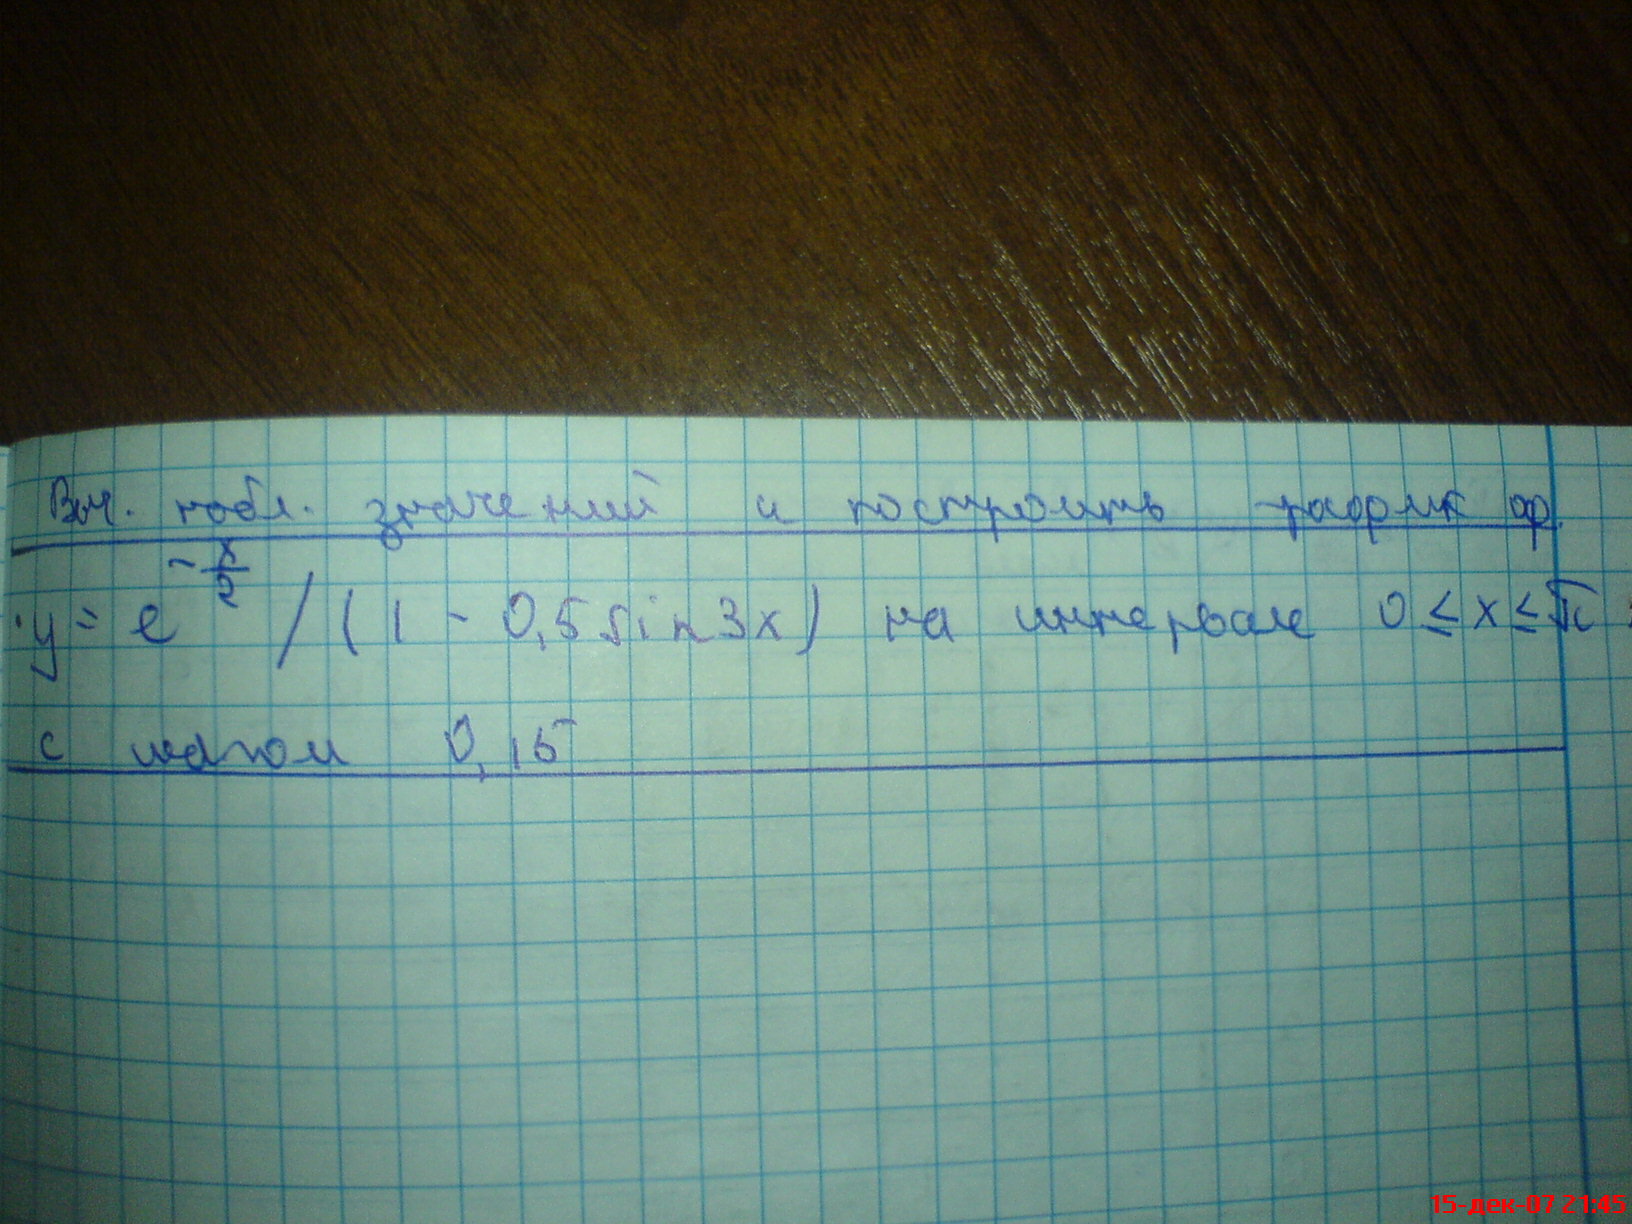 Выч. табл. значений и построить график ф.
y = e^{-x/2} / (1 - 0,5 sin 3x) на интервале 0 ≤ x ≤ π
с шагом 0,15
15-дек-07 21:45